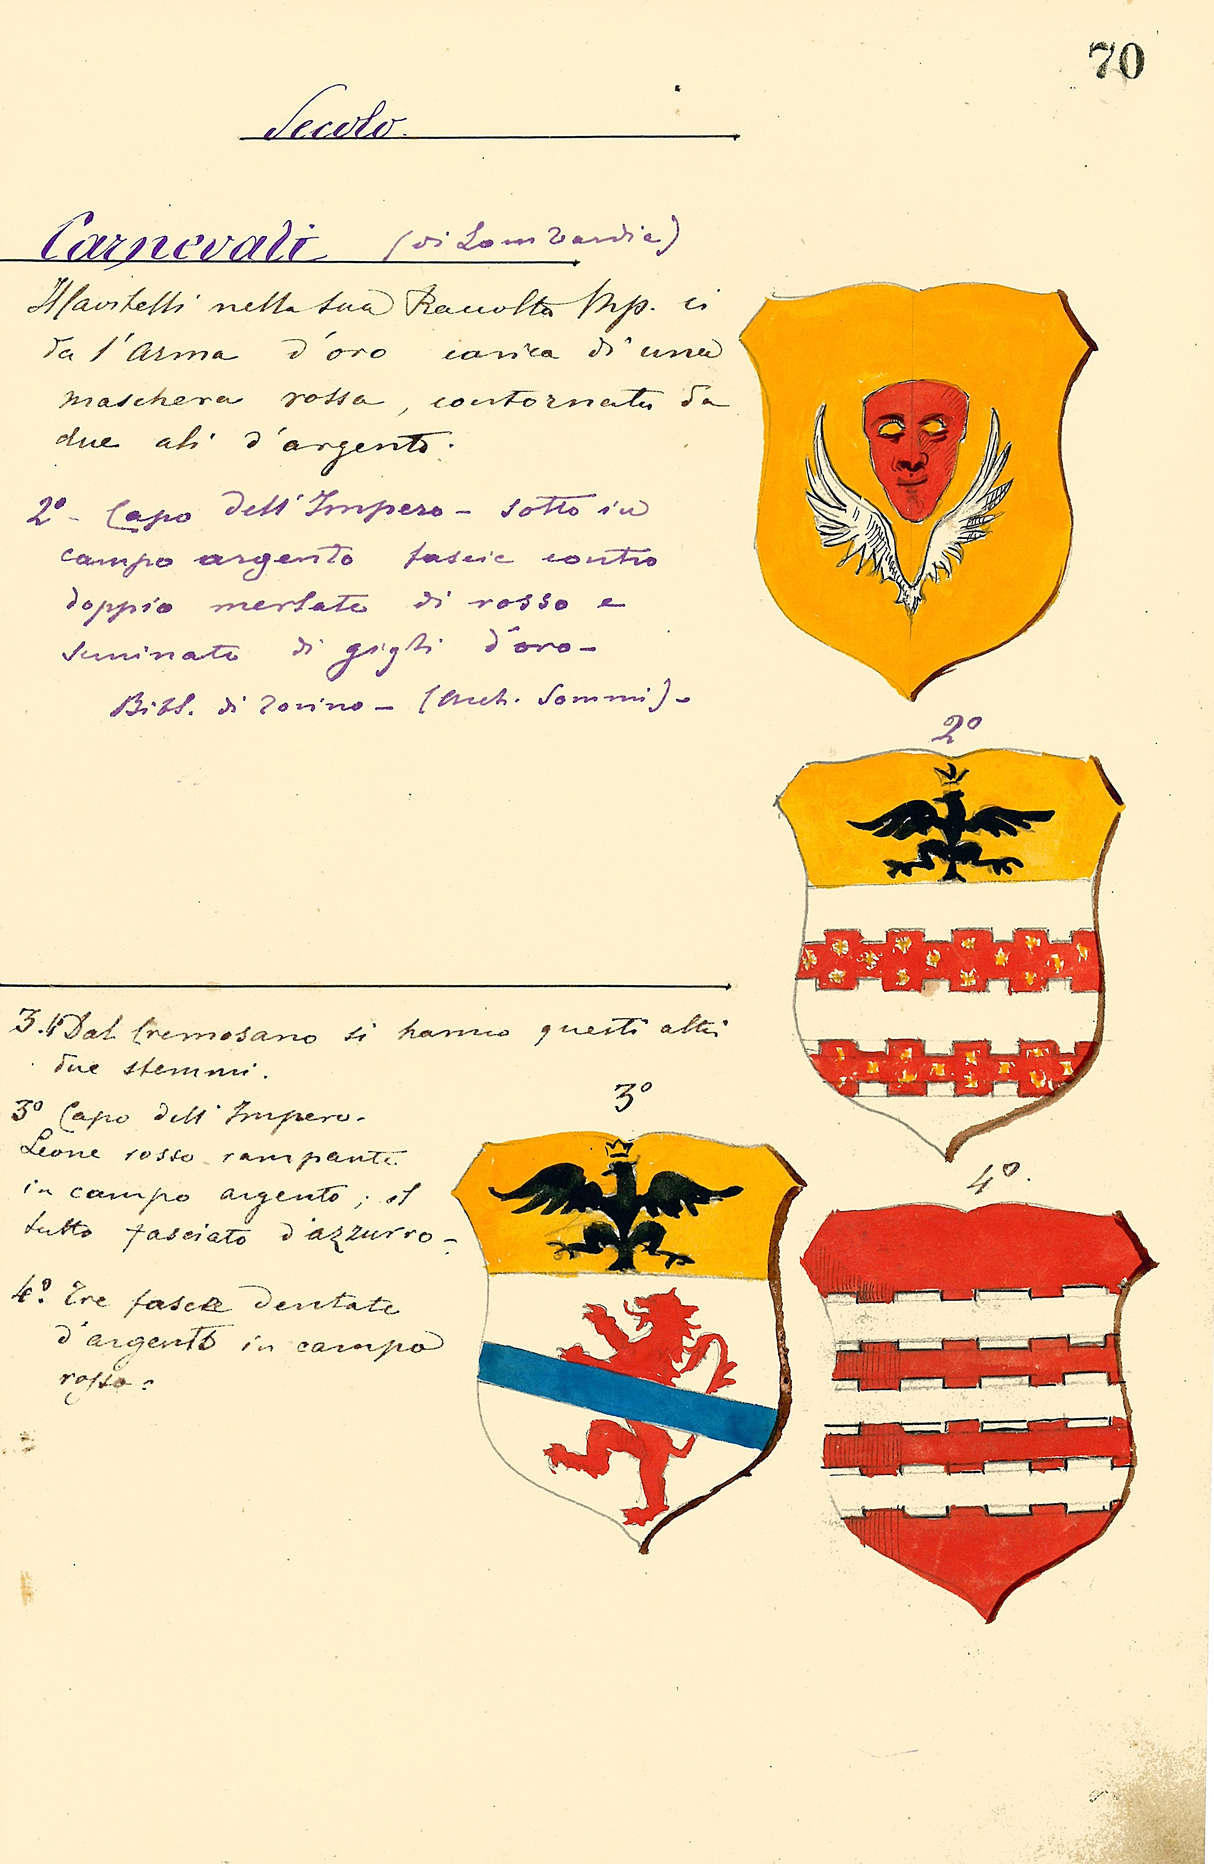 70
Secolo.
Carnevali (di Lombardia)
nella sua Raccolta Mp. ci
da l'Arma d'oro carica di una
maschera rossa, contornata da
due ali d'argento.
2º - Capo dell'Impero - sotto in
campo argento fascie contro
doppio merlate di rosso e
seminate di gigli d'oro -
Bibl. di Torino - (Arch. Sommi) -
2º
3. Dal Cremosano si hanno questi altri
due stemmi.
3º Capo dell'Impero.
Leone rosso rampante
in campo argento; il
tutto fasciato d'azzurro -
3º
4º. Tre fascie dentate
d'argento in campo
rosso.
4º.